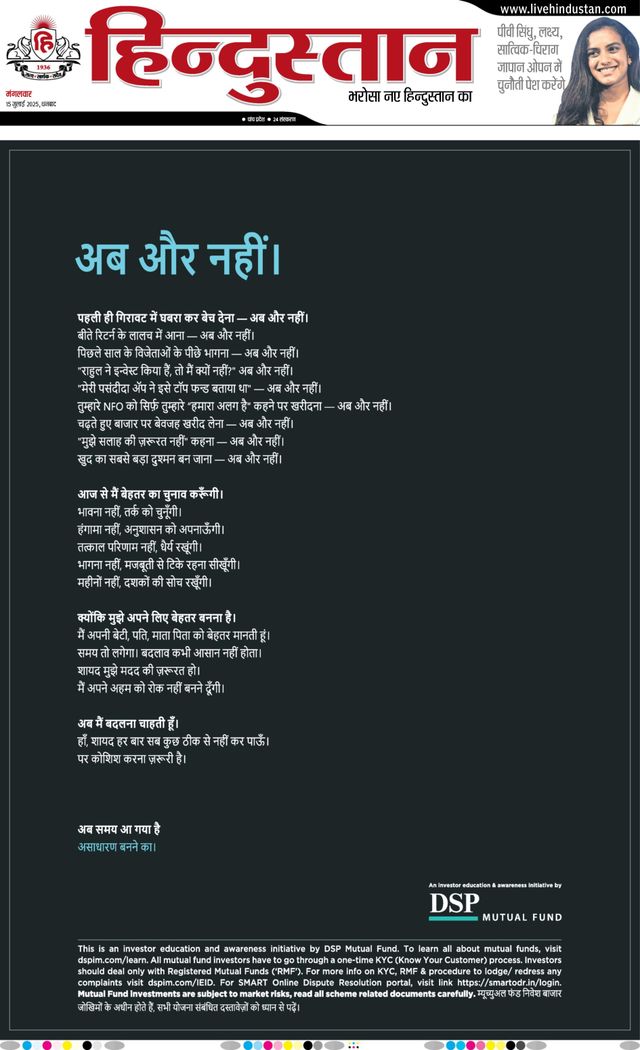 www.livehindustan.com
हि
1936
हिन्दुस्तान
भरोसा नए हिन्दुस्तान का
पीवी सिंधु, लक्ष्य,
सात्विक-चिराग
जापान ओपन में
चुनौती पेश करेंगे
मंगलवार
15 जुलाई 2025, धनबाद
● पांच प्रदेश ● 24 संस्करण
अब और नहीं।
पहली ही गिरावट में घबरा कर बेच देना — अब और नहीं।
बीते रिटर्न के लालच में आना — अब और नहीं।
पिछले साल के विजेताओं के पीछे भागना — अब और नहीं।
"राहुल ने इन्वेस्ट किया हैं, तो मैं क्यों नहीं?" अब और नहीं।
"मेरी पसंदीदा ॲप ने इसे टॉप फन्ड बताया था" — अब और नहीं।
तुम्हारे NFO को सिर्फ़ तुम्हारे "हमारा अलग है" कहने पर खरीदना — अब और नहीं।
चढ़ते हुए बाजार पर बेवजह खरीद लेना — अब और नहीं।
"मुझे सलाह की ज़रूरत नहीं" कहना — अब और नहीं।
खुद का सबसे बड़ा दुश्मन बन जाना — अब और नहीं।
आज से मैं बेहतर का चुनाव करूँगी।
भावना नहीं, तर्क को चुनूँगी।
हंगामा नहीं, अनुशासन को अपनाऊँगी।
तत्काल परिणाम नहीं, धैर्य रखूंगी।
भागना नहीं, मजबूती से टिके रहना सीखूँगी।
महीनों नहीं, दशकों की सोच रखूँगी।
क्योंकि मुझे अपने लिए बेहतर बनना है।
मैं अपनी बेटी, पति, माता पिता को बेहतर मानती हूं।
समय तो लगेगा। बदलाव कभी आसान नहीं होता।
शायद मुझे मदद की ज़रूरत हो।
मैं अपने अहम को रोक नहीं बनने दूँगी।
अब मैं बदलना चाहती हूँ।
हाँ, शायद हर बार सब कुछ ठीक से नहीं कर पाऊँ।
पर कोशिश करना ज़रूरी है।
अब समय आ गया है
असाधारण बनने का।
An investor education & awareness initiative by
DSP
MUTUAL FUND
This is an investor education and awareness initiative by DSP Mutual Fund. To learn all about mutual funds, visit
dspim.com/learn. All mutual fund investors have to go through a one-time KYC (Know Your Customer) process. Investors
should deal only with Registered Mutual Funds ('RMF'). For more info on KYC, RMF & procedure to lodge/ redress any
complaints visit dspim.com/IEID. For SMART Online Dispute Resolution portal, visit link https://smartodr.in/login.
Mutual Fund investments are subject to market risks, read all scheme related documents carefully. म्यूच्युअल फंड निवेश बाजार
जोखिमों के अधीन होते हैं, सभी योजना संबंधित दस्तावेज़ों को ध्यान से पढ़ें।